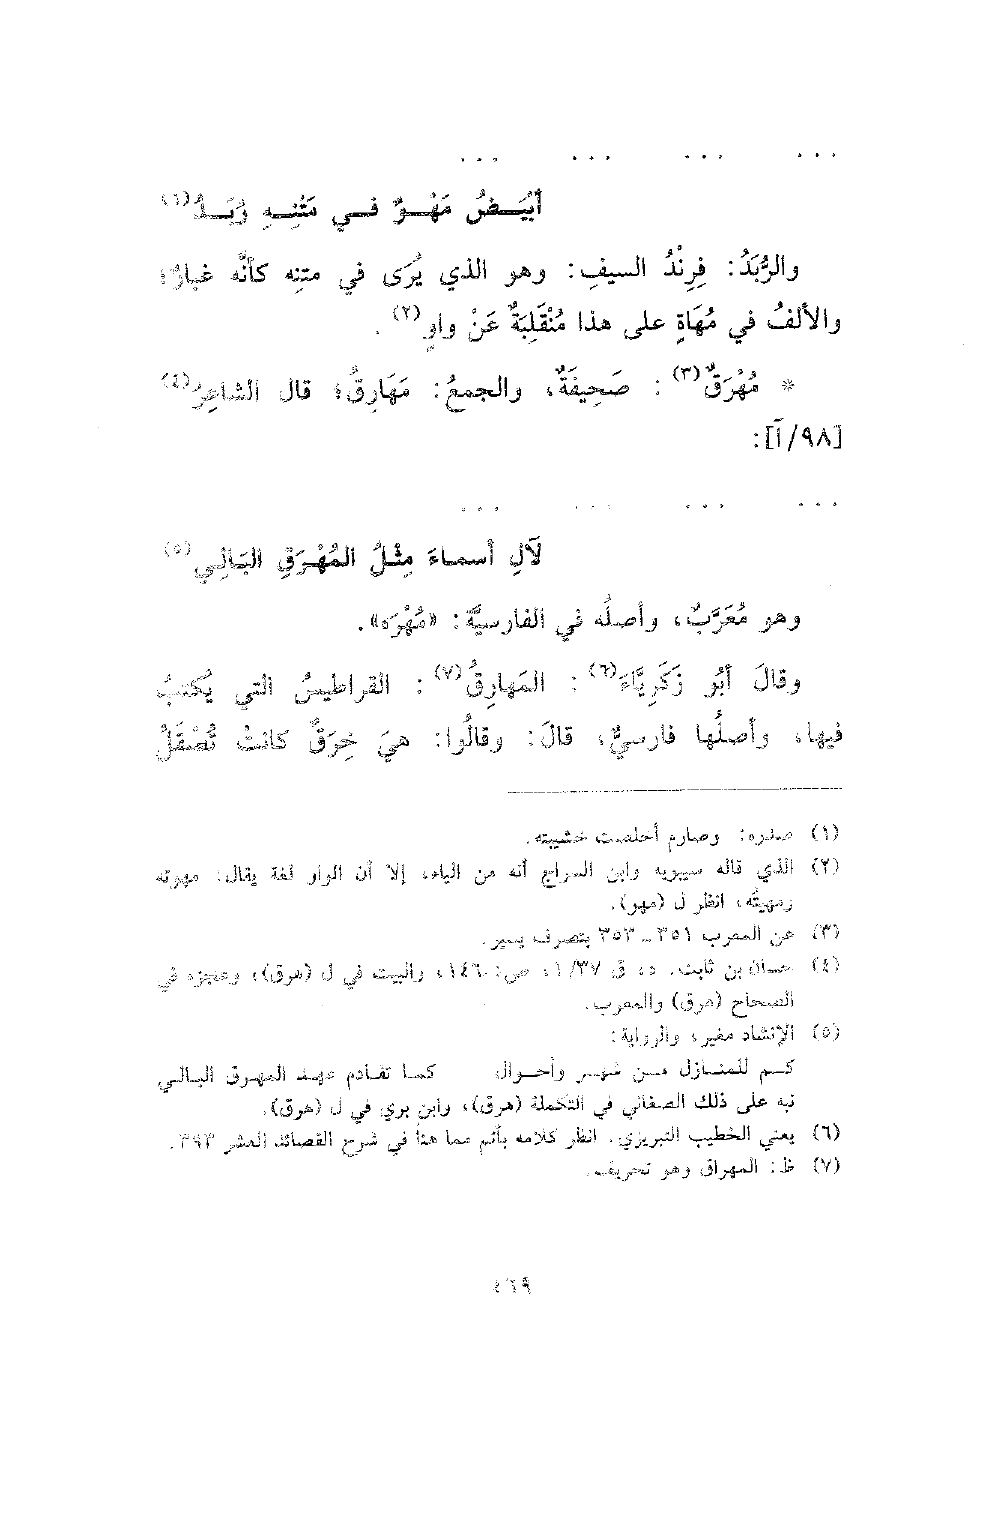 ... ... ... ...
أَبْيَضُ مَهْوٌ في مَتْنِهِ رُبَدُ(١)
والرُّبَدُ: فِرِنْدُ السيفِ: وهو الذي يُرَى في متنِه كأنَّه غبارٌ؛
والألفُ في مُهَاةٍ على هذا مُنْقَلِبَةٌ عَنْ واوٍ(٢).
* مُهْرَقٌ(٣): صَحِيفَةٌ، والجمعُ: مَهَارِقُ؛ قال الشاعِرُ(٤)
[٩٨/آ]:
... ... ... ...
لآلِ أسماءَ مِثْلُ المُهْرَقِ البَالِي(٥)
وهو مُعَرَّبٌ، وأصلُه في الفارسيَّة: «مُهْرَه».
وقالَ أَبُو زَكَرِيَّاءَ(٦): المَهارِقُ(٧): القراطيسُ التي يُكتبُ
فيها، وأصلُها فارسيٌّ، قالَ: وقالُوا: هيَ خِرَقٌ كانتْ تُصْقَلُ
(١) صدره: وصارم أخلصت خشيبته.
(٢) الذي قاله سيبويه وابن السراج أنه من الياء، إلا أن الواو لغة يقال: مهوته
ومهيته، انظر ل (مهو).
(٣) عن المعرب ٣٥١ - ٣٥٣ بتصرف يسير.
(٤) حسان بن ثابت. د، ق ١/٣٧، ص: ١٤٦، والبيت في ل (هرق)، وعجزه في
الصحاح (هرق) والمعرب.
(٥) الإنشاد مغير، والرواية:
كم للمنازل من شهر وأحوال كما تقادم عهد المهرق البالي
نبه على ذلك الصغاني في التكملة (هرق)، وابن بري في ل (هرق).
(٦) يعني الخطيب التبريزي. انظر كلامه بأتم مما هنا في شرح القصائد العشر ٣٩٣.
(٧) ظ: المهراق وهو تحريف.
٤٦٩